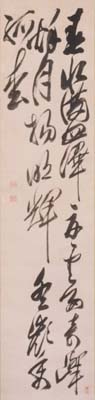 春水滿四澤夏雲多奇峰
秋月揚明輝冬嶺秀
孤松